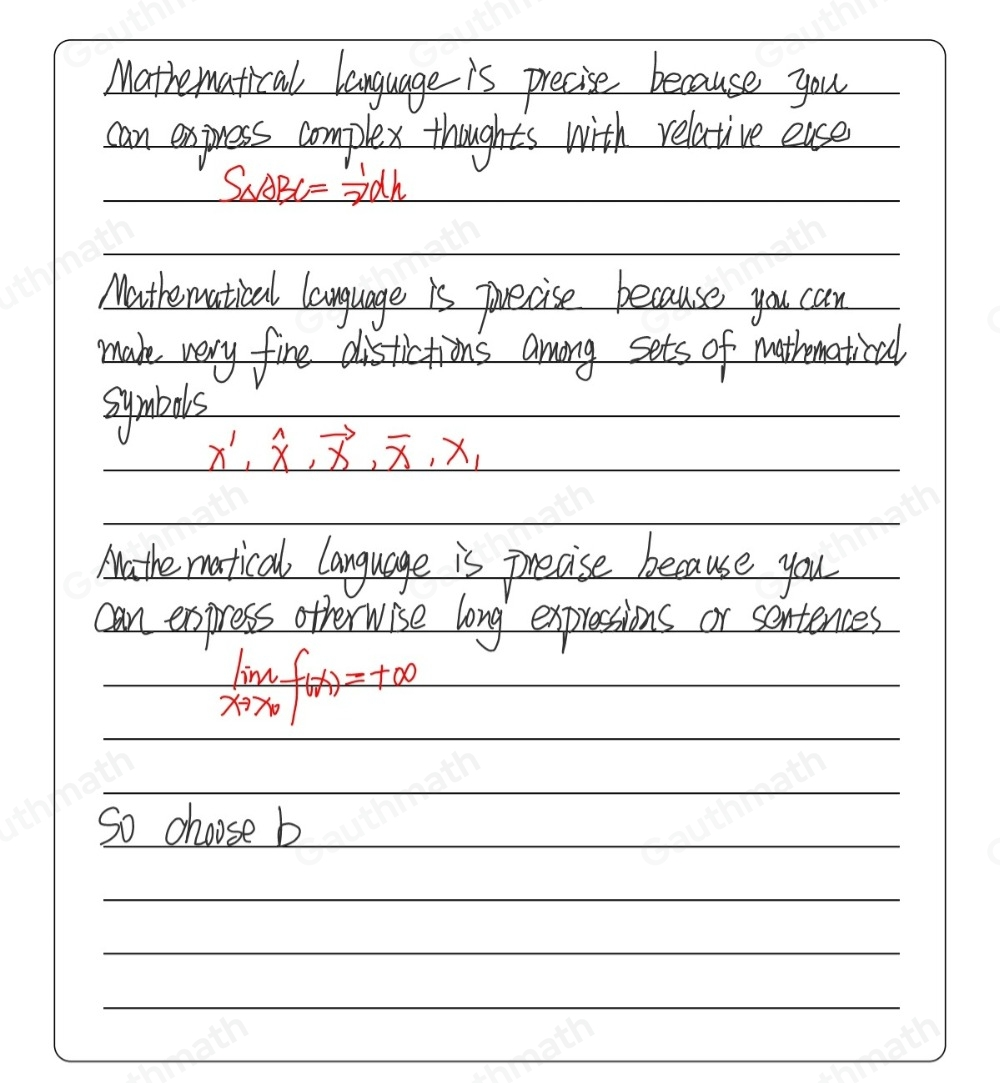 Mathematical language is precise because you
can express complex thoughts with relative ease
S△ABC = 1/2 dh
Mathematical language is precise because you can
make very fine distictions among sets of mathematical
symbols
x', x̂, x⃗, x̄, x₁
Mathematical language is precise because you
can express otherwise long expressions or sentences
lim f(x) = +∞
x→x₀
So choose b